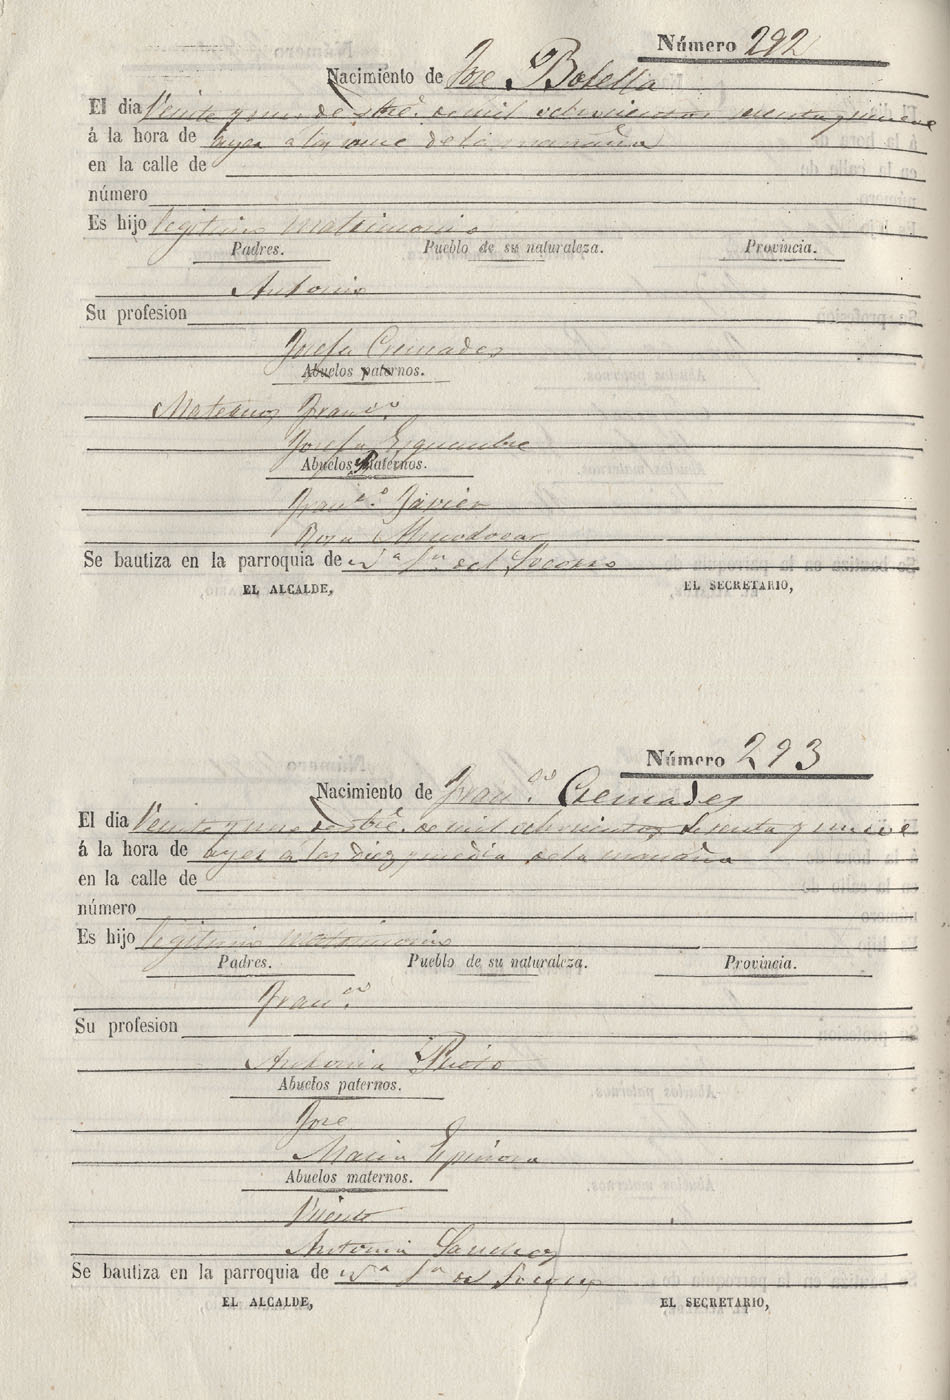 Número 292
Nacimiento de Jose Botella
El dia Veinte y uno de Stbre. de mil ochocientos sesenta y nueve
á la hora de ayer a las once de la mañana
en la calle de
número
Es hijo legitimo matrimonio
Padres. Pueblo de su naturaleza. Provincia.
Antonio
Su profesion
Josefa Cremades
Abuelos paternos.
Maternos Franco.
Josefa
Abuelos Maternos.
Franco. Javier
Rosa
Se bautiza en la parroquia de Na. Sra. del Socorro
EL ALCALDE, EL SECRETARIO,
Número 293
Nacimiento de Franco. Cremades
El dia Veinte y uno de Stbre. de mil ochocientos sesenta y nueve
á la hora de ayer á las diez y media de la mañana
en la calle de
número
Es hijo legitimo matrimonio
Padres. Pueblo de su naturaleza. Provincia.
Franco.
Su profesion
Antonia
Abuelos paternos.
Jose
Maria Espinosa
Abuelos maternos.
Vicente
Antonia Sanchez
Se bautiza en la parroquia de Na. Sra. del Socorro
EL ALCALDE, EL SECRETARIO,